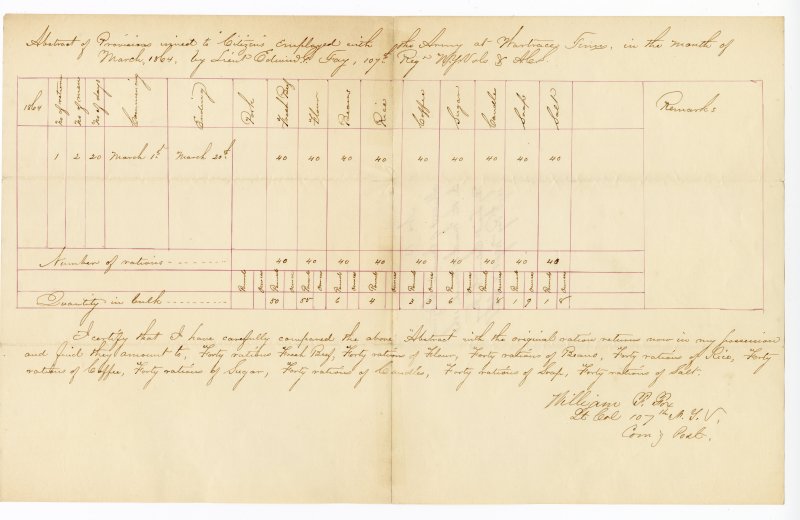 Abstract of Provisions issued to Citizens employed with the Army at Wartrace Tenn. in the month of
March, 1864, by Lieut Edwin Fay, 107th Reg N.Y. Vols
1864 No of returns No of men No of days Commencing Ending Pork Fresh Beef Flour Beans Rice Coffee Sugar Candles Soap Salt Remarks
1 2 20 March 1st March 20th 40 40 40 40 40 40 40 40 40
Number of rations 40 40 40 40 40 40 40 40 40
Pounds Ounces Pounds Ounces Pounds Ounces Pounds Ounces Pounds Ounces Pounds Ounces Pounds Ounces Pounds Ounces Pounds Ounces Pounds Ounces
Quantity in bulk 50 55 6 4 3 3 6 8 1 9 1 8
I certify that I have carefully compared the above Abstract with the original ration returns now in my possession
and find they amount to, Forty rations Fresh Beef, Forty rations of Flour, Forty rations of Beans, Forty rations of Rice, Forty
rations of Coffee, Forty rations of Sugar, Forty rations of Candles, Forty rations of Soap, Forty rations of Salt.
William F. Fox
Lt Col 107th N.Y.V.
Com'g Post.